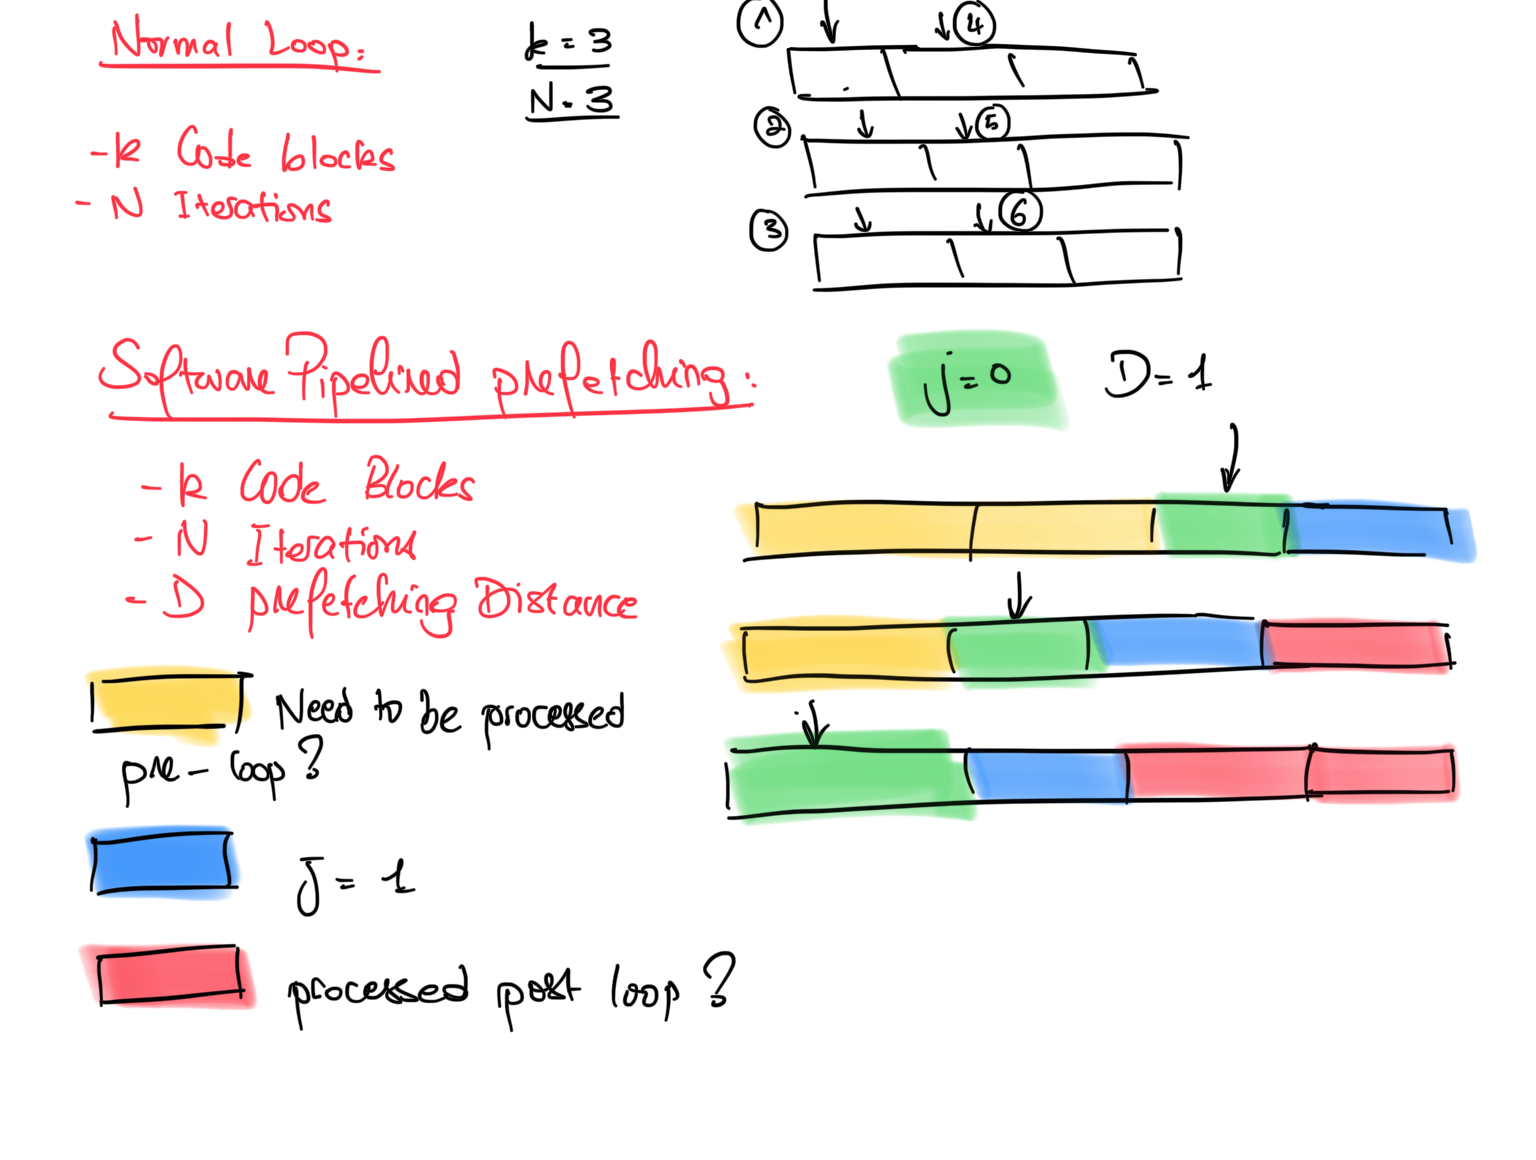 Normal Loop:
k = 3
N = 3
- k Code blocks
- N Iterations
1
4
2
5
3
6
Software Pipelined prefetching:
j = 0
D = 1
- k Code Blocks
- N Iterations
- D prefetching Distance
Need to be processed
pre-loop?
J = 1
processed post loop?